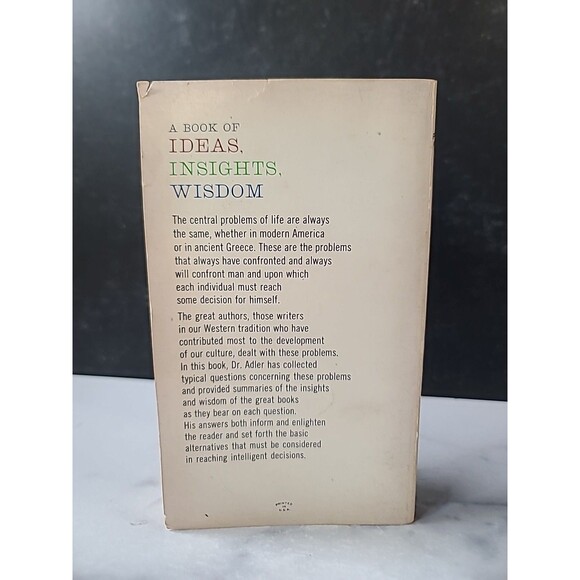 A BOOK OF
IDEAS,
INSIGHTS,
WISDOM
The central problems of life are always
the same, whether in modern America
or in ancient Greece. These are the problems
that always have confronted and always
will confront man and upon which
each individual must reach
some decision for himself.
The great authors, those writers
in our Western tradition who have
contributed most to the development
of our culture, dealt with these problems.
In this book, Dr. Adler has collected
typical questions concerning these problems
and provided summaries of the insights
and wisdom of the great books
as they bear on each question.
His answers both inform and enlighten
the reader and set forth the basic
alternatives that must be considered
in reaching intelligent decisions.
PRINTED
IN
U.S.A.